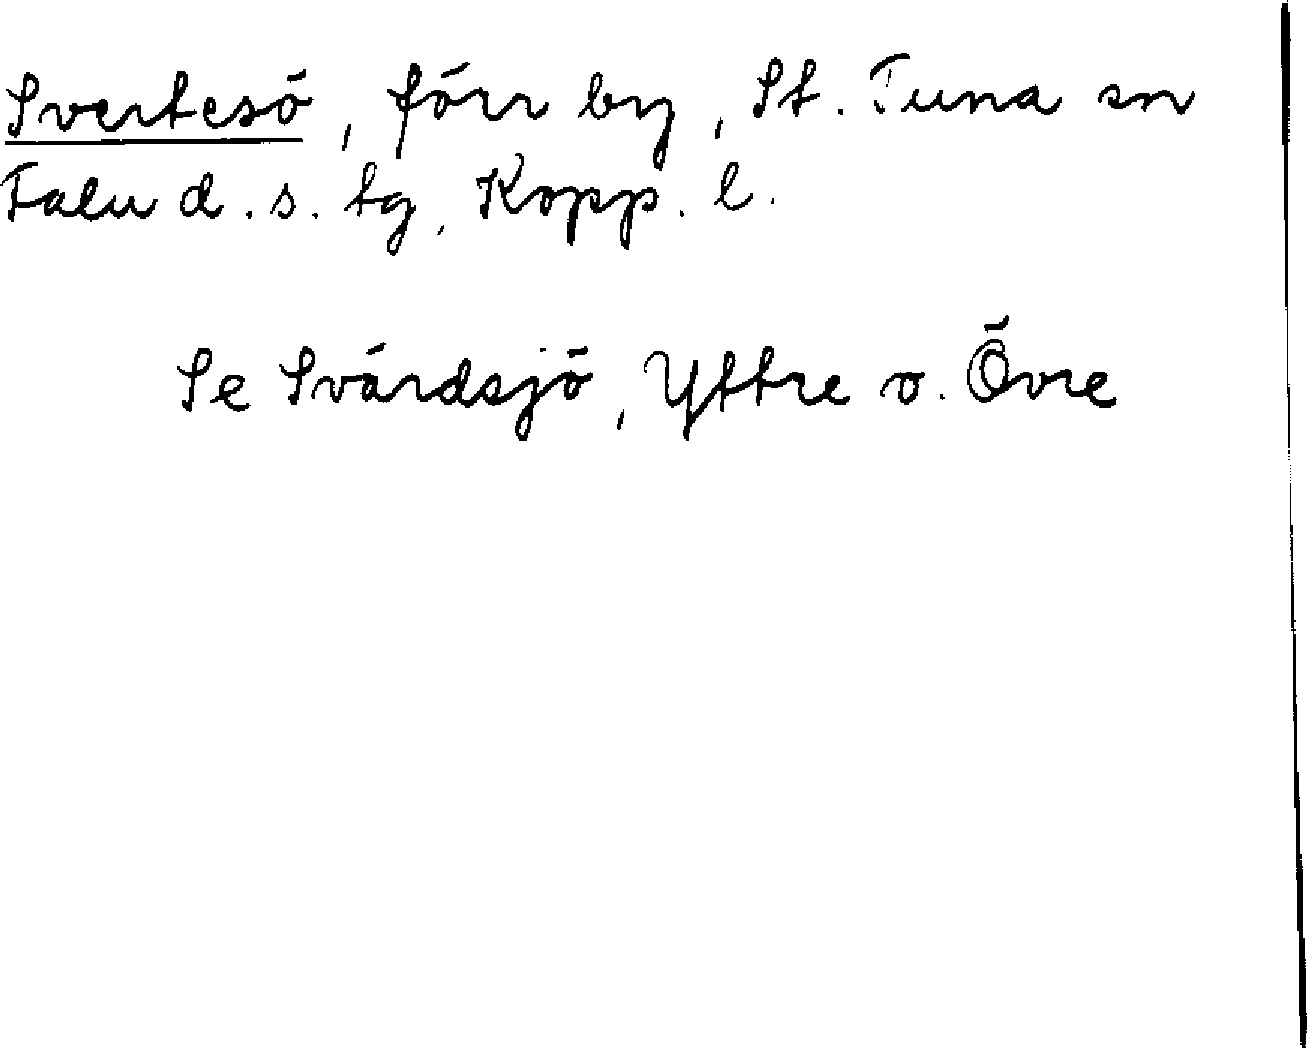 Svertesö, förr by, St. Tuna sn
Falu d. s. tg, Kopp. l.
Se Svärdsjö, Yttre o. Övre